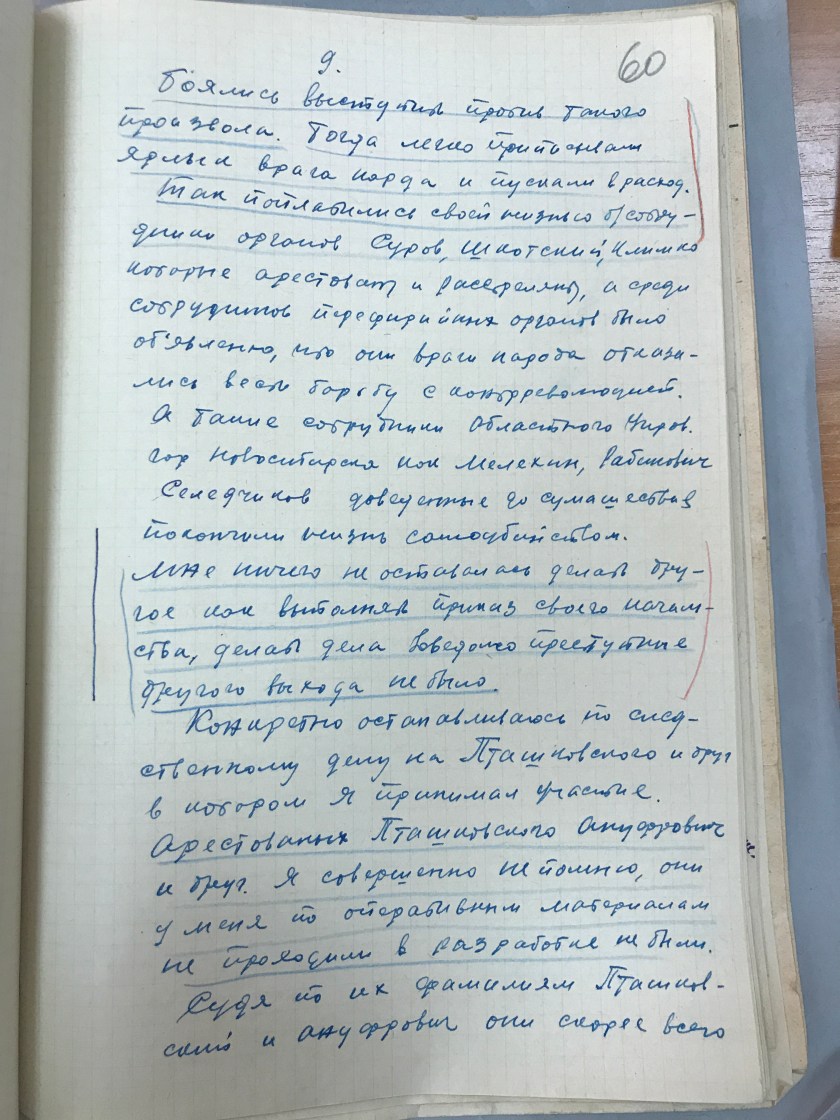 9.
60
Боялись выступить против такого
произвола. Тогда легко приписывали
ярлык врага народа и пускали в расход.
Так поплатились своей жизнью б/сотру-
дники органов Суров, Шкотский, Климко
которые арестованы и расстреляны, а среди
сотрудников периферийных органов было
об'явленно, что они враги народа отказа-
лись вести борьбу с контрреволюцией.
А такие сотрудники Областного Управ.
гор Новосибирска как Мелехин, Рабинович
Селедчиков доведенные до сумашествия
покончили жизнь самоубийством.
Мне ничего не оставалась делать дру-
гое как выполнять приказ своего началь-
ства, делать дела преступные
другого выхода не было.
Конкретно останавливаюсь по след-
ственному делу на Пташковского и друг
в котором я принимал участие.
Арестованых Пташковского Ануфрович
и друг. Я совершенно не помню, они
у меня по оперативным материалам
не проходили в разработке не были.
Судя по их фамилиям Пташков-
ский и Ануфрович они скорее всего